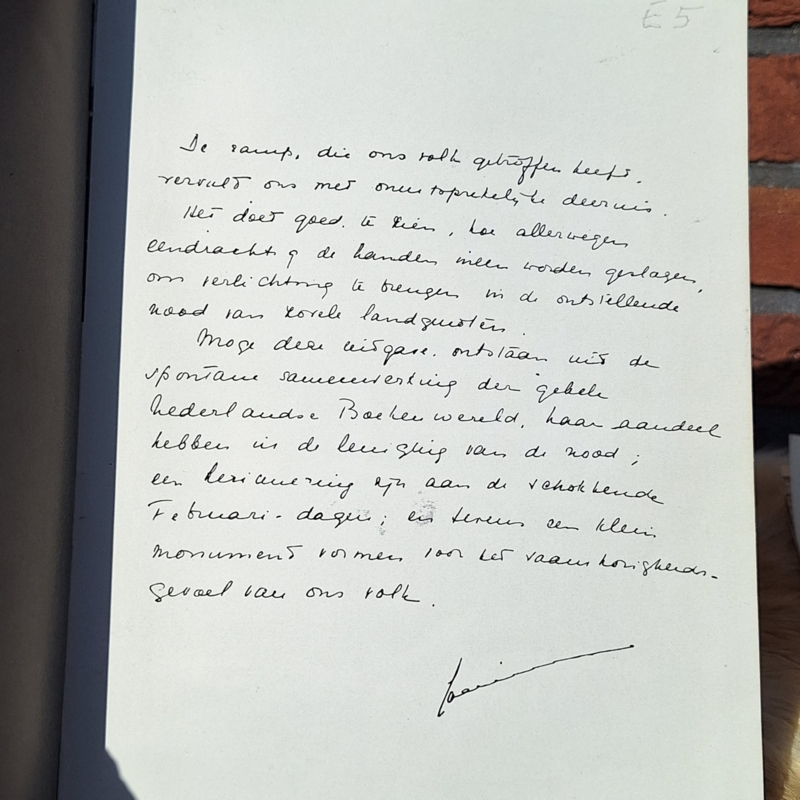 É 5
De ramp, die ons volk getroffen heeft,
vervult ons met onuitsprekelijke deernis.
Het doet goed, te zien, hoe allerwegen
eendrachtig de handen ineen worden geslagen,
om verlichting te brengen in de ontstellende
nood van zovele landgenoten.
Moge deze uitgave, ontstaan uit de
spontane samenwerking der gehele
Nederlandse Boekenwereld, haar aandeel
hebben in de leniging van de nood;
een herinnering zijn aan de schokkende
Februari-dagen; en tevens een klein
monument vormen voor het saamhorigheids-
gevoel van ons volk.